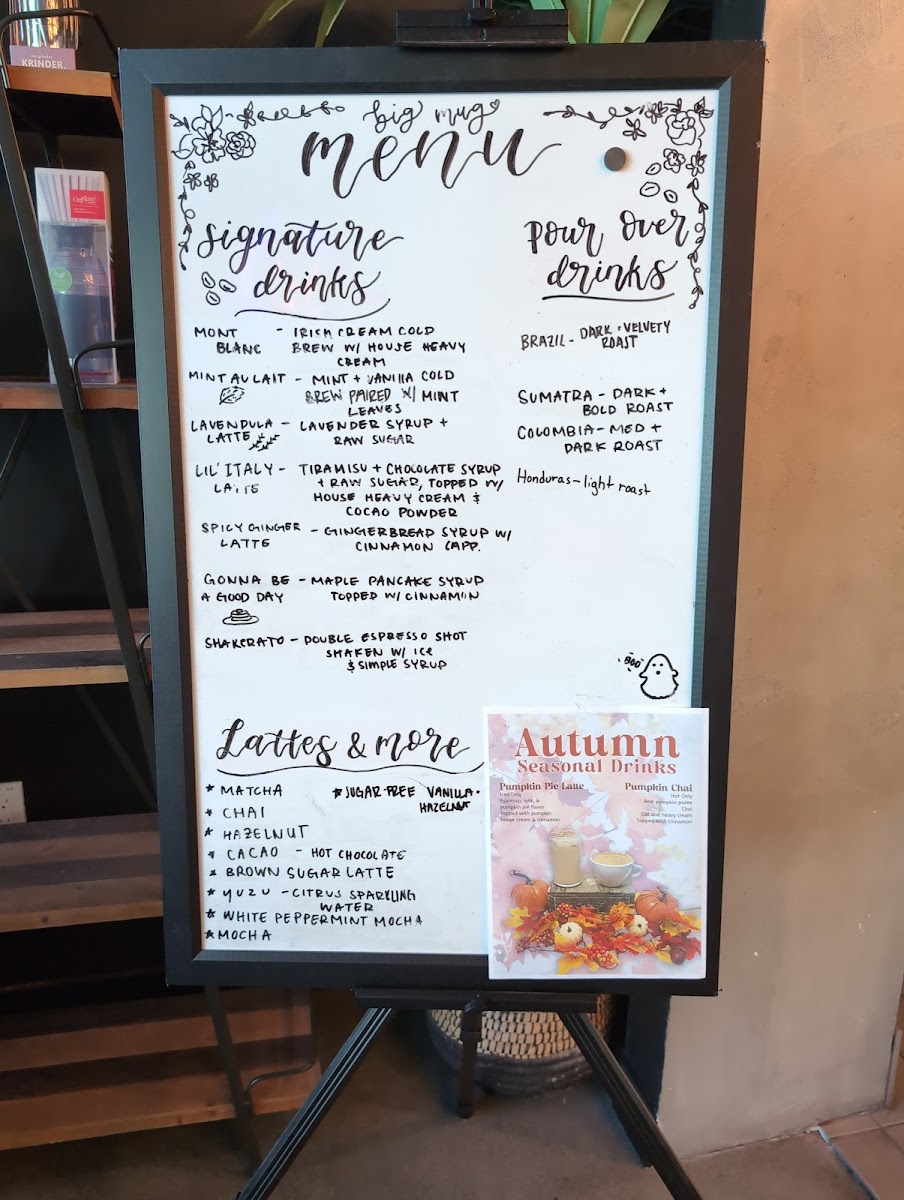 KRINDER.
big mug
menu
signature
drinks
MONT - IRISH CREAM COLD
BLANC BREW W/ HOUSE HEAVY
CREAM
MINT AU LAIT - MINT + VANILLA COLD
BREW PAIRED W/ MINT
LEAVES
LAVENDULA - LAVENDER SYRUP +
LATTE RAW SUGAR
LIL' ITALY - TIRAMISU + CHOCOLATE SYRUP
LATTE + RAW SUGAR, TOPPED W/
HOUSE HEAVY CREAM &
COCAO POWDER
SPICY GINGER - GINGERBREAD SYRUP W/
LATTE CINNAMON CAPP.
GONNA BE - MAPLE PANCAKE SYRUP
A GOOD DAY TOPPED W/ CINNAMON
SHAKERATO - DOUBLE ESPRESSO SHOT
SHAKEN W/ ICE
& SIMPLE SYRUP
Pour Over
drinks
BRAZIL - DARK + VELVETY
ROAST
SUMATRA - DARK +
BOLD ROAST
COLOMBIA - MED +
DARK ROAST
Honduras - light roast
"BOO"
Lattes & more
* MATCHA
* CHAI
* HAZELNUT
* CACAO - HOT CHOCOLATE
* BROWN SUGAR LATTE
* YUZU - CITRUS SPARKLING
WATER
* WHITE PEPPERMINT MOCHA
* MOCHA
* SUGAR-FREE VANILLA +
HAZELNUT
Autumn
Seasonal Drinks
Pumpkin Pie Latte
Iced Only
Espresso, milk, &
pumpkin pie flavor
Topped with pumpkin
house cream & cinnamon
Pumpkin Chai
Hot Only
Real pumpkin puree
Chai
Oat and heavy cream
Topped with cinnamon